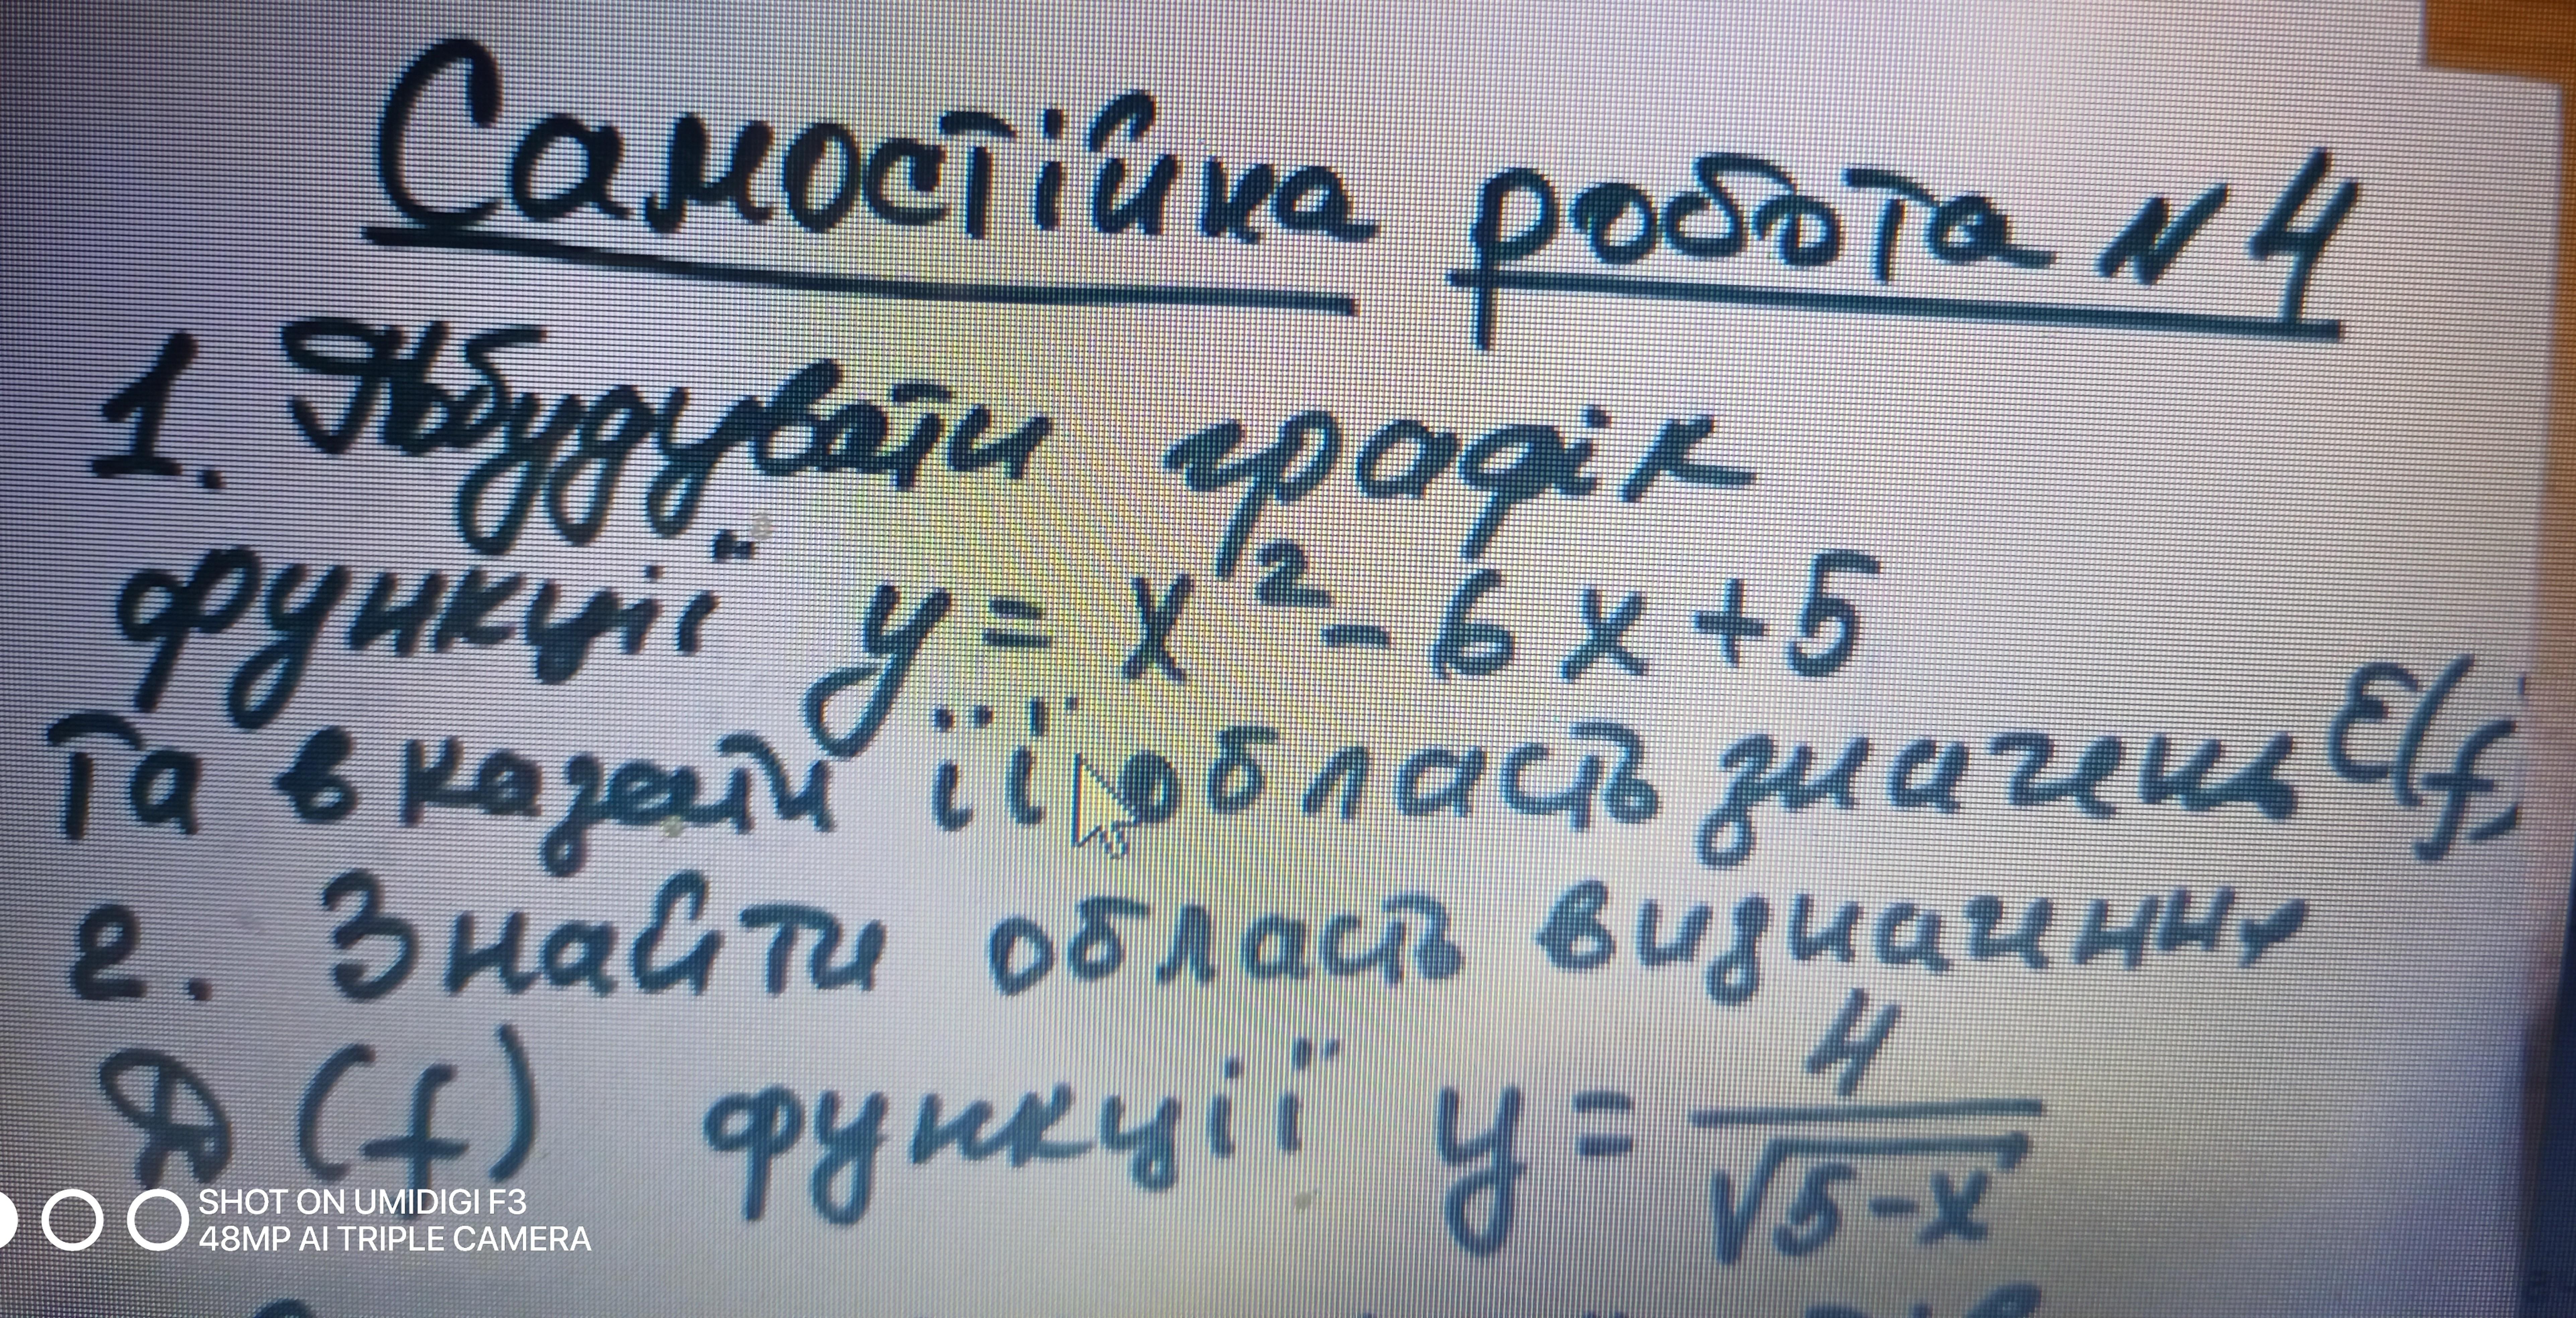 Самостійна робота №4
1. Побудувати графік
функції y = x² - 6x + 5
та вказати її область значень E(f)
2. Знайти область визначення
D(f) функції y = 4/√(5-x)
SHOT ON UMIDIGI F3
48MP AI TRIPLE CAMERA